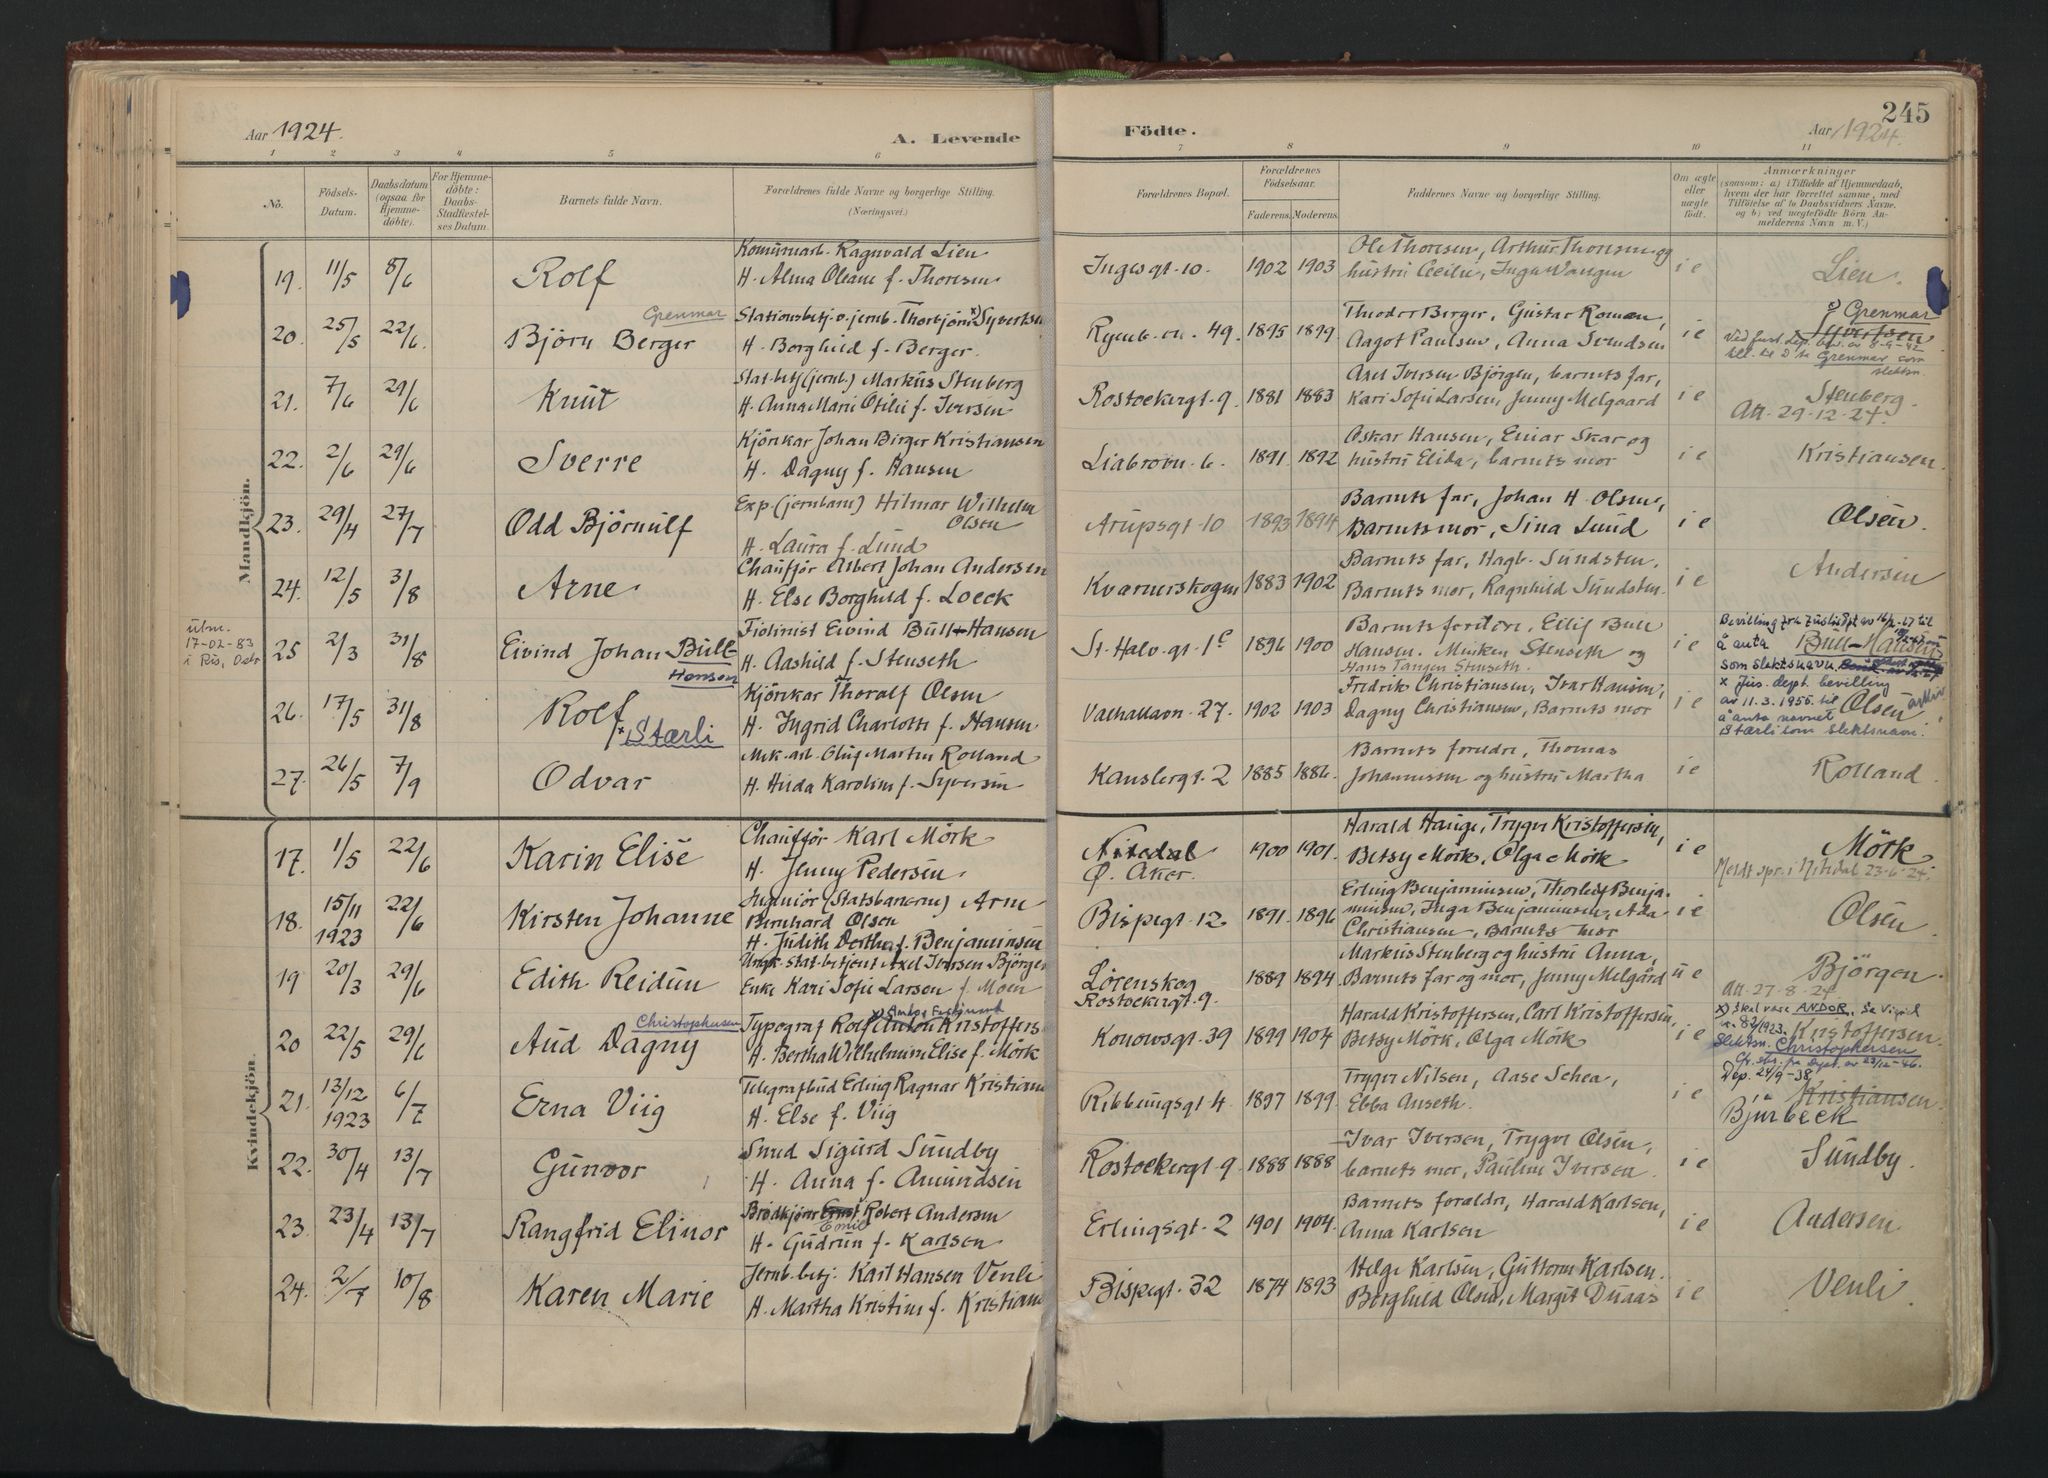 245
Aar 1924.
A. Levende
Födte.
Aar 1924.
1 2 3 4 5 6 7 8 9 10 11
No.
Födsels-
Datum.
Daabsdatum
(ogsaa for
Hjemme-
döbte).
For Hjemme-
döbte:
Daabs-
Stadfæstel-
ses Datum.
Barnets fulde Navn.
Forældrenes fulde Navne og borgerlige Stilling.
(Næringsvei.)
Forældrenes Bopæl.
Forældrenes
Födselsaar.
Faderens. Moderens.
Faddernes Navne og borgerlige Stilling.
Om ægte
eller
uægte
födt.
Anmærkninger
(saasom: a) i Tilfælde af Hjemmedaab,
hvem der har forrettet samme, med
Tilföielse af to Daabsvidners Navne,
og b) ved uægtefödte Börn An-
melderens Navn m. V.)
Mandkjön.
19. 11/5 8/6 Rolf
Ragnvald Lien
H. Alma Oleane f. Thoresen
Inges gt. 10. 1902 1903
Ole Thoresen, Arthur Thoresen og
hustru Cecilie, Inga Wangen
i e Lien.
20. 25/5 22/6. Björn Berger
Grenmar
Stationsbetj. v. jernb. Thorbjörn Syvertsen
H. Borghild f. Berger.
49. 1895 1899
Theodor Berger, Gustav Roman,
Aagot Paulsen, Anna Svendsen
i e Grenmar
Syvertsen
Grenmar som
slektsn.
21. 7/6 29/6 Knut
Stat.betj (jernb.) Markus Stenberg
H. Anna Marie Otilie f. Iversen
Rostockergt. 9. 1881 1883
Axel Iversen Björgen, barnets far,
Kari Sofie Larsen, Jenny Melgaard
i e Stenberg.
Att. 29-12-24.
22. 2/6 29/6 Sverre
Kjörekar Johan Birger Kristiansen
H. Dagny f. Hansen
Liabrovn. 6. 1891 1892
Oskar Hansen, Einar Skar og
hustru Elida, barnets mor
i e Kristiansen.
23. 29/4 27/7 Odd Björnulf
Exp. (jernbane) Hilmar Wilhelm
Olsen
H. Laura f. Lund
Arupsgt. 10 1893 1894
Barnets far, Johan H. Olsen,
Barnets mor, Sina Lund
i e Olsen.
24. 12/5 3/8 Arne
Chaufför Albert Johan Andersen
H. Else Borghild f. Loeck
Kværnerskogen 1883 1902
Barnets far, Hagb. Sundsten.
Barnets mor, Ragnhild Sundsten.
i e Andersen
utm.
17-02-83
25 2/3 31/8 Eivind Johan Bull-
Hansen
Fiolinist Eivind Bull-Hansen
H. Aashild f. Stenseth
St. Halv. gt. 1c 1896 1900
Barnets foreldre, Eilif Bull
Hansen. Mimken Stenseth og
Hans Tangen Stenseth.
i e
å anta Bull-Hansen
som slektsnavn.
26. 17/5 31/8 Rolf
x Stærli
Kjörekar Thoralf Olsen
H. Ingrid Charlotte f. Hansen
Valhallavn. 27. 1902 1903
Fredrik Christiansen, Ivar Hansen,
Dagny Christiansen, Barnets mor
i e Olsen
x Jus. dept. bevilling
av 11.3.1955 til
å anta navnet
Stærli som slektsnavn.
27. 26/5 7/9 Odvar
Mek. arb. Oluf Martin Rolland
H. Hilda Karoline f. Syversen
Kanslergt. 2 1885 1886.
Barnets foreldre, Thomas
Johannessen og hustru Martha
i e Rolland.
Kvindekjön.
17. 1/5 22/6 Karin Elise
Chaufför Karl Mörk
H. Jenny Pedersen.
Nitedal
Ö. Aker. 1900 1901.
Harald Hauge, Trygve Kristoffersen,
Betsy Mörk, Olga Mörk
i e Mörk.
Meldt spr. i Nitedal 23-6-24.
18. 15/11 1923 22/6 Kirsten Johanne
Ingeniör (Statsbanerne) Arne
Bernhard Olsen
H. Judith Dorthea f. Benjaminsen
Bispegt. 12 1891. 1896
Erling Benjaminsen, Thorleif Benja-
minsen, Inga Benjaminsen, Ada
Christiansen, Barnets mor
i e Olsen
19 20/3 29/6 Edith Reidun
Ungk. stat.betjent Axel Iversen Björgen
Enke Kari Sofie Larsen f. Moen
Lörenskog
Rostockergt. 9. 1889 1894
Markus Stenberg og hustru Anna,
Barnets far og mor, Jenny Melgård
u e Björgen.
Att. 27-8-24.
20 22/5 29/6 Aud Dagny
Christophersen
Typograf Rolf Anton Kristoffers
H. Bertha Wilhelmine Elise f. Mörk
Konowsgt. 39 1899 1904
Harald Kristoffersen, Carl Kristoffersen,
Betsy Mörk, Olga Mörk
i e x) Skal være ANDOR.
Kristoffersen.
Slektsn. Christophersen
21. 13/12 1923 6/7 Erna Viig
Telegrafbud Erling Ragnar Kristians
H. Else f. Viig
Ribbungsgt. 4. 1897 1899.
Trygve Nilsen, Aase Schea,
Ebba Anseth.
i e Dep. 24/9-38
Kristiansen.
Bjurbeck
22. 30/4 13/7 Gunvor
Smed Sigurd Sundby
H. Anna f. Amundsen
Rostockergt. 9 1888 1888
Ivar Iversen, Trygve Olsen,
barnets mor, Pauline Iversen.
i e Sundby.
23. 23/4 13/7 Rangfrid Elinor
Brödkjörer Ernst Robert Andersen
Emil
H. Gudrun f. Karlsen
Erlingsgt. 2 1901 1904.
Barnets foreldre, Harald Karlsen,
Anna Karlsen
i e Andersen
24. 2/7 10/8 Karen Marie
Jernb.betj. Karl Hansen Venli
H. Martha Kristine f. Kristians
Bispegt. 32 1874 1893
Helge Karlsen, Guttorm Karlsen.
Borghild Olsen, Margit Duaas
i e Venli.